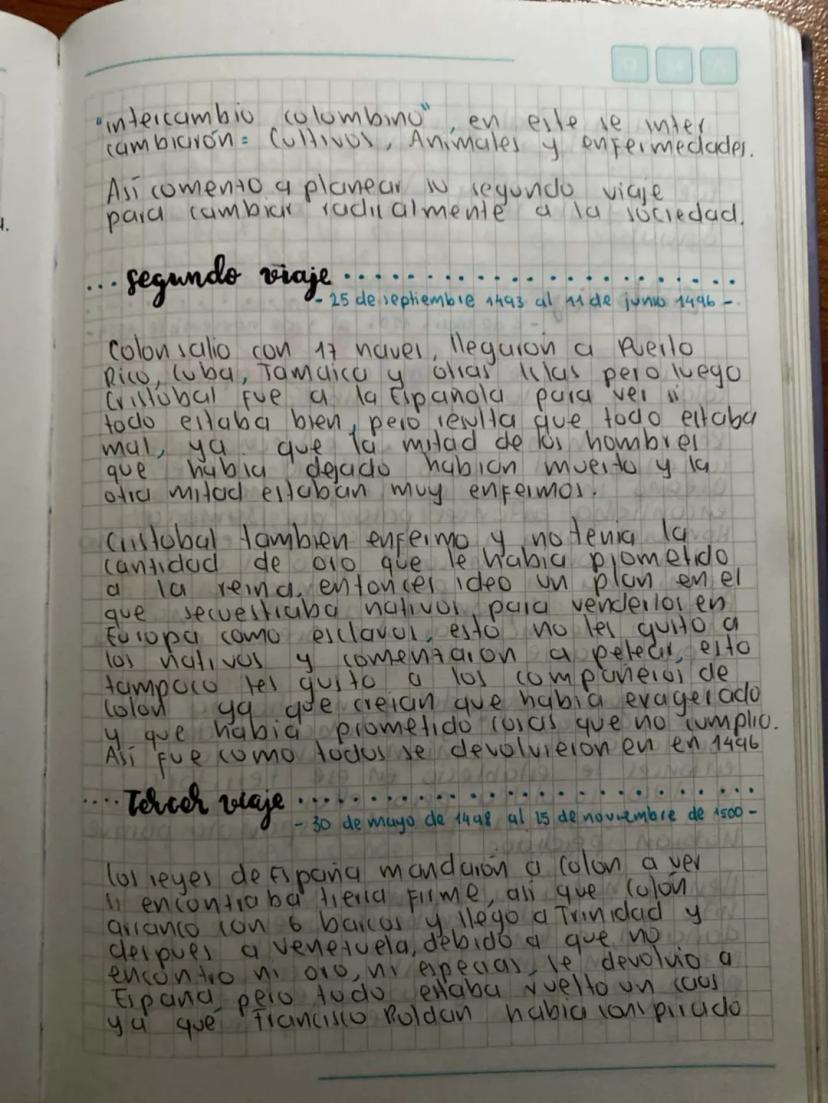 "intercambio columbino", en este se inter
cambiarón: Cultivos, Animales y enfermedades.
Así comento a planear su segundo viaje
para cambiar radicalmente a la sociedad.
... segundo viaje ...............
- 25 de septiembre 1493 al 11 de junio 1496 -
Colon salio con 17 naves, llegaron a Puerto
Rico, Cuba, Jamaica y otras islas pero luego
Cristobal fue a la Española para ver si
todo estaba bien, pero resulta que todo estaba
mal, ya que la mitad de los hombres
que habia dejado habian muerto y la
otra mitad estaban muy enfermos.
Cristobal tambien enfermo y no tenia la
cantidad de oro que le habia prometido
a la reina, entonces ideo un plan en el
que secuestraba nativos para venderlos en
Europa como esclavos, esto no les gusto a
los nativos y comenzaron a pelear, esto
tampoco les gusto a los compañeros de
Colon ya que creian que habia exagerado
y que habia prometido cosas que no cumplio.
Así fue como todos se devolvieron en en 1496
.... Tercer viaje .................
- 30 de mayo de 1498 al 15 de noviembre de 1500 -
los reyes de España mandarón a Colon a ver
si encontraba tierra firme, asi que Colón
arranco con 6 barcos y llego a Trinidad y
despues a Venezuela, debido a que no
encontro ni oro, ni especias, se devolvio a
España, pero todo estaba vuelto un caos
ya que Francisco Roldan habia conspirado